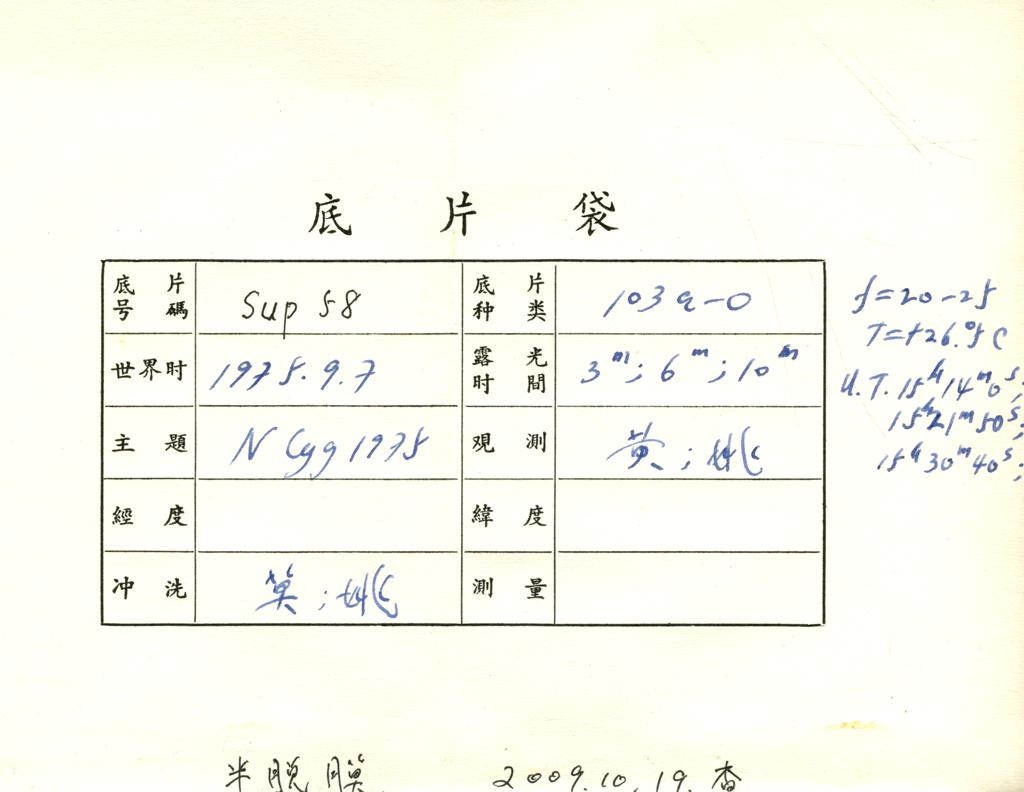 底片袋
底片号碼 Sup 58 底片种类 103a-O
世界时 1975.9.7 露光时間 3ᵐ; 6ᵐ; 10ᵐ
主題 N Cyg 1975 观測 黄; 姚
經度 緯度
冲洗 黄; 姚 測量
f=20-25
T=+26.°5 C
U.T. 15ʰ14ᵐ0ˢ;
15ʰ21ᵐ50ˢ;
15ʰ30ᵐ40ˢ;
半脱膜 2009.10.19.